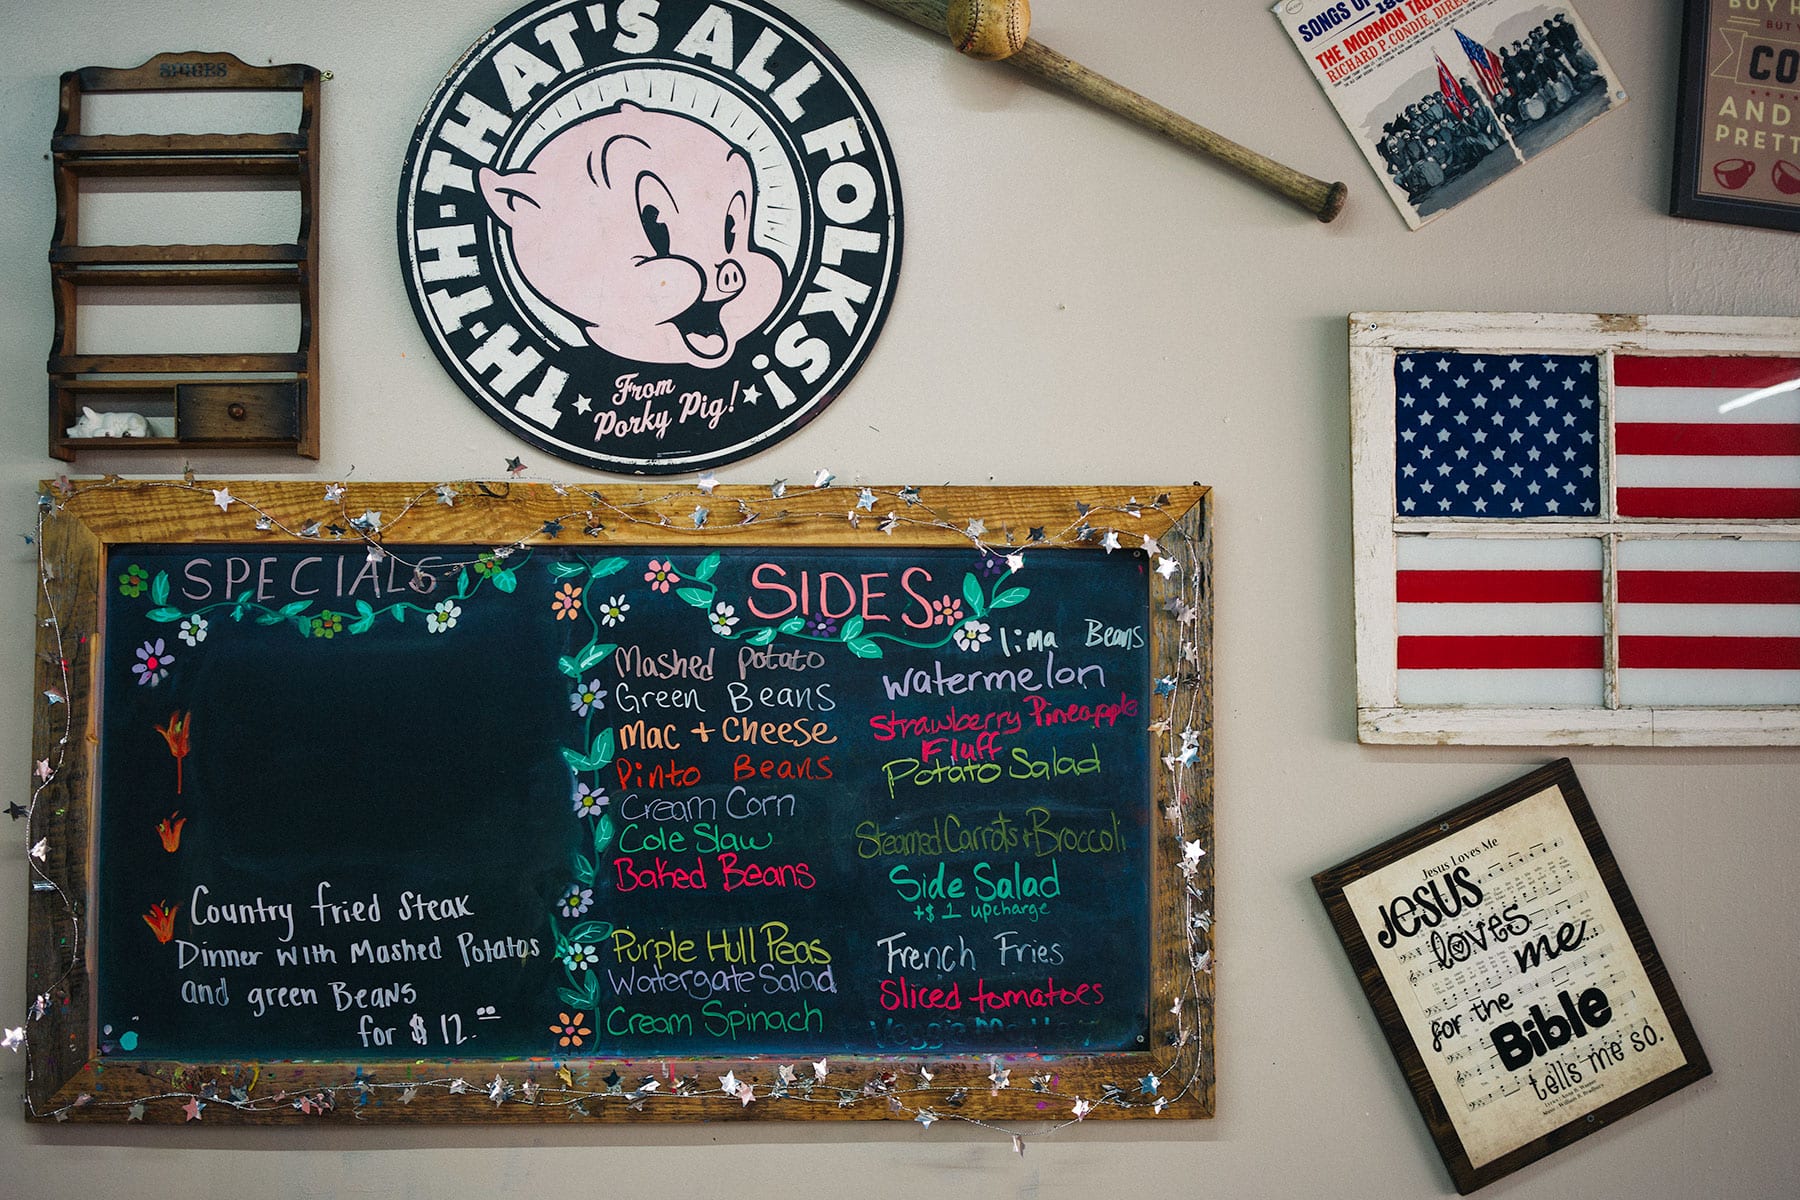 SPICES
TH-TH-TH-THAT'S ALL FOLKS!
From
Porky Pig!
SONGS OF
THE MORMON TABE
RICHARD P. CONDIE, DIREC
BUY H
BUT Y
CO
AND
PRETT
SPECIALS
Country fried steak
Dinner with Mashed Potatos
and green Beans
for $12.00
SIDES
Mashed potato
Green Beans
Mac + Cheese
Pinto Beans
Cream Corn
Cole Slaw
Baked Beans
Purple Hull Peas
Watergate Salad
Cream Spinach
lima Beans
watermelon
Strawberry Pineapple
Fluff
Potato Salad
Steamed Carrots + Broccoli
Side Salad
+$1 upcharge
French Fries
Sliced tomatoes
Veggie
Jesus Loves Me
JESUS
loves
me...
for the
Bible
tells me so.